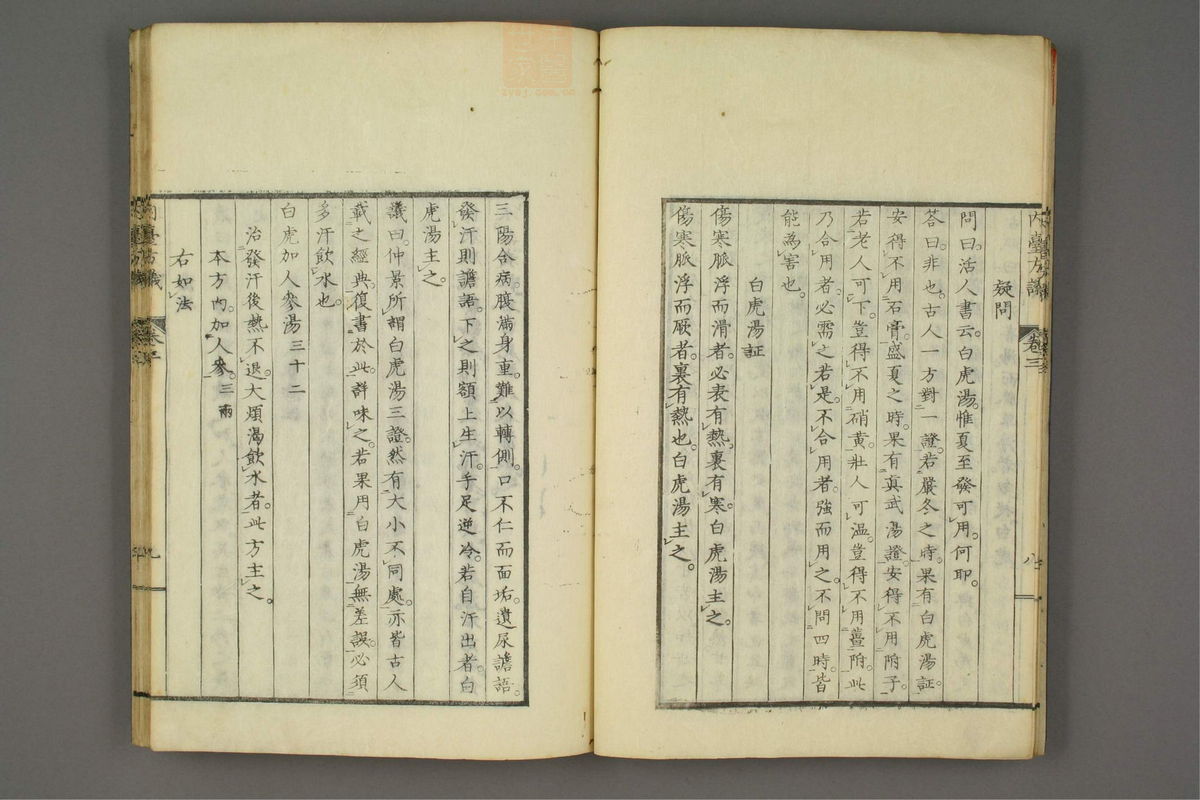 疑問
問曰活人書云白虎湯惟夏至發可用何耶
答曰非也古人一方對一證若嚴冬之時果有白虎湯証
安得不用石膏盛夏之時果有真武湯證安得不用附子
若老人可下豈得不用硝黄壯人可温豈得不用薑附此
乃合用者必需之若是不合用者強而用之不問四時皆
能為害也
白虎湯証
傷寒脈浮而滑者必表有熱裏有寒白虎湯主之
傷寒脈浮而厥者裏有熱也白虎湯主之
三陽合病腹滿身重難以轉側口不仁而面垢遺尿譫語
發汗則譫語下之則額上生汗手足逆冷若自汗出者白
虎湯主之
議曰仲景所謂白虎湯三證然有大小不同處亦皆古人
載之經典復書於此詳味之若果用白虎湯無差誤必須
多汗飲水也
白虎加人參湯三十二
治發汗後熱不退大煩渴飲水者此方主之
本方內加人參三兩
右如法